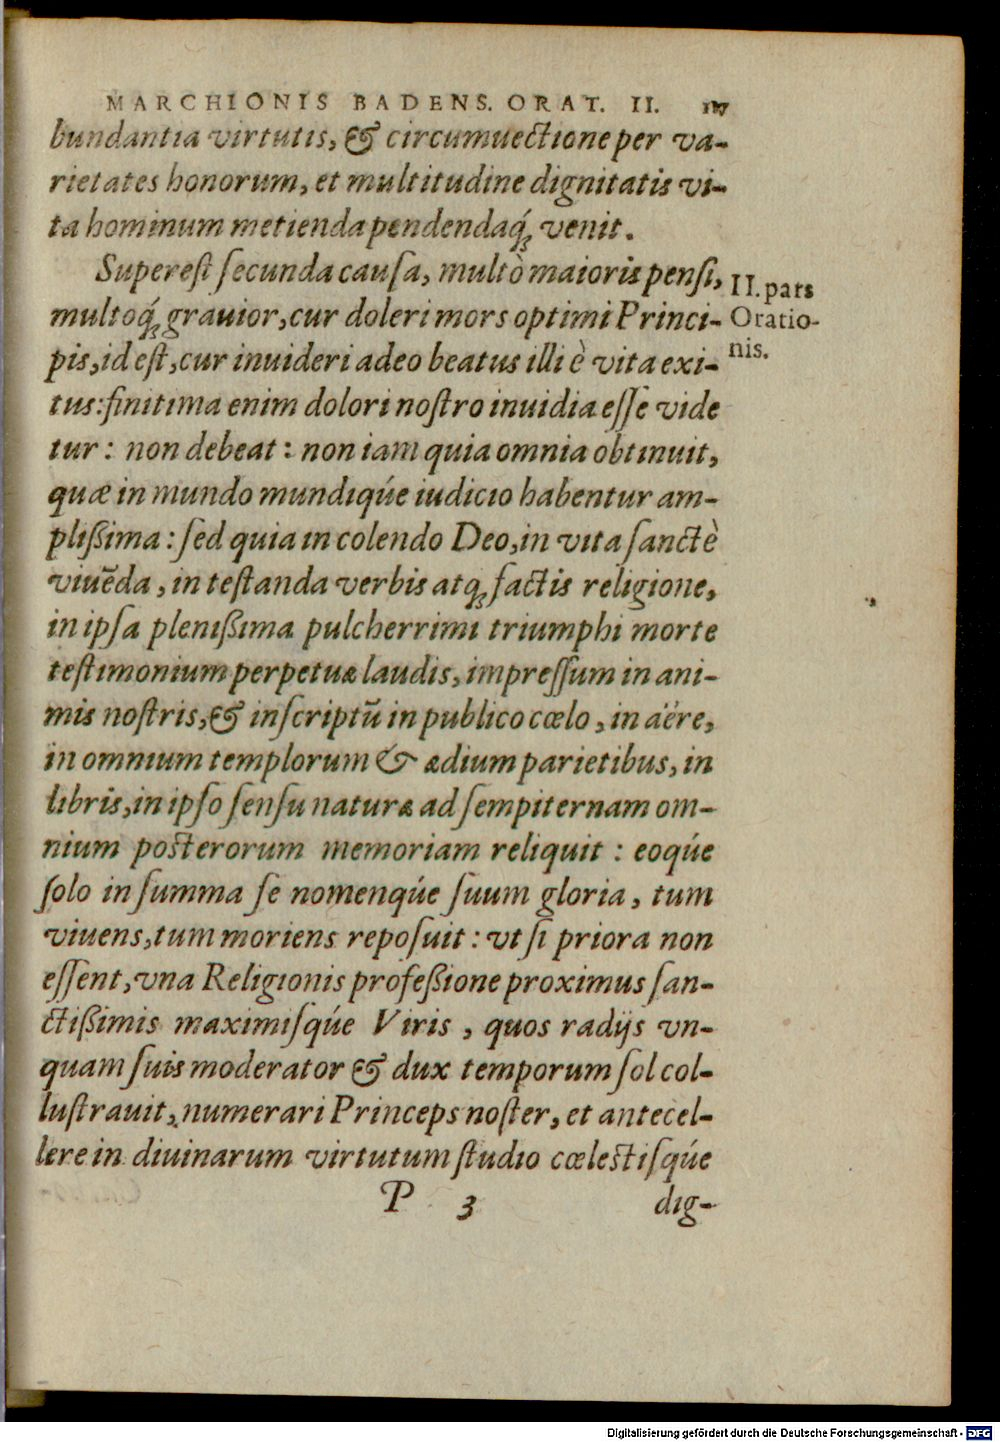 MARCHIONIS BADENS. ORAT. II.
bundantia virtutis, & circumuectione per va-
rietates honorum, et multitudine dignitatis vi-
ta hominum metienda pendendaq́; venit.
Superest secunda causa, multò maioris pensi,
multoq́; grauior, cur doleri mors optimi Princi-
pis, id est, cur inuideri adeo beatus illi è vita exi-
tus: finitima enim dolori nostro inuidia esse vide
tur: non debeat: non iam quia omnia obtinuit,
quæ in mundo mundiqúe iudicio habentur am-
plißima: sed quia in colendo Deo, in vita sanctè
viuẽda, in testanda verbis atq; factis religione,
in ipsa plenißima pulcherrimi triumphi morte
testimonium perpetuæ laudis, impressum in ani-
mis nostris, & inscriptũ in publico cœlo, in aëre,
in omnium templorum & ædium parietibus, in
libris, in ipso sensu naturæ ad sempiternam om-
nium posterorum memoriam reliquit: eoqúe
solo in summa se nomenqúe suum gloria, tum
viuens, tum moriens reposuit: vt si priora non
essent, vna Religionis profeßione proximus san-
ctißimis maximisqúe Viris, quos radijs vn-
quam suis moderator & dux temporum sol col-
lustrauit, numerari Princeps noster, et antecel-
lere in diuinarum virtutum studio cœlestisqúe
P 3 dig-
II. pars
Oratio-
nis.
Digitalisierung gefördert durch die Deutsche Forschungsgemeinschaft - DFG